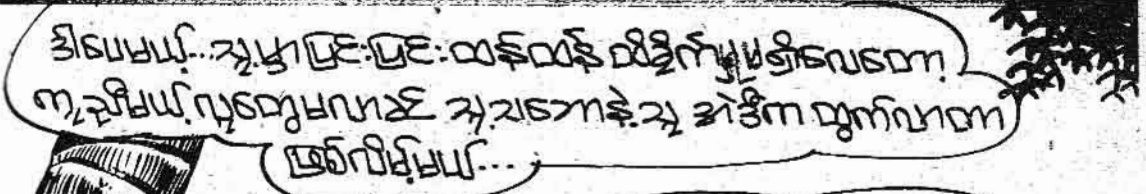 ဒါပေမယ့်...သူ့မှာပြင်းပြင်းထန်ထန် ထိခိုက်မှုမရှိလေတော့
ကူညီမယ့်လူတွေမလာခင် သူ့သဘောနဲ့သူ အဲဒီကထွက်လာတာ
ဖြစ်လိမ့်မယ်...